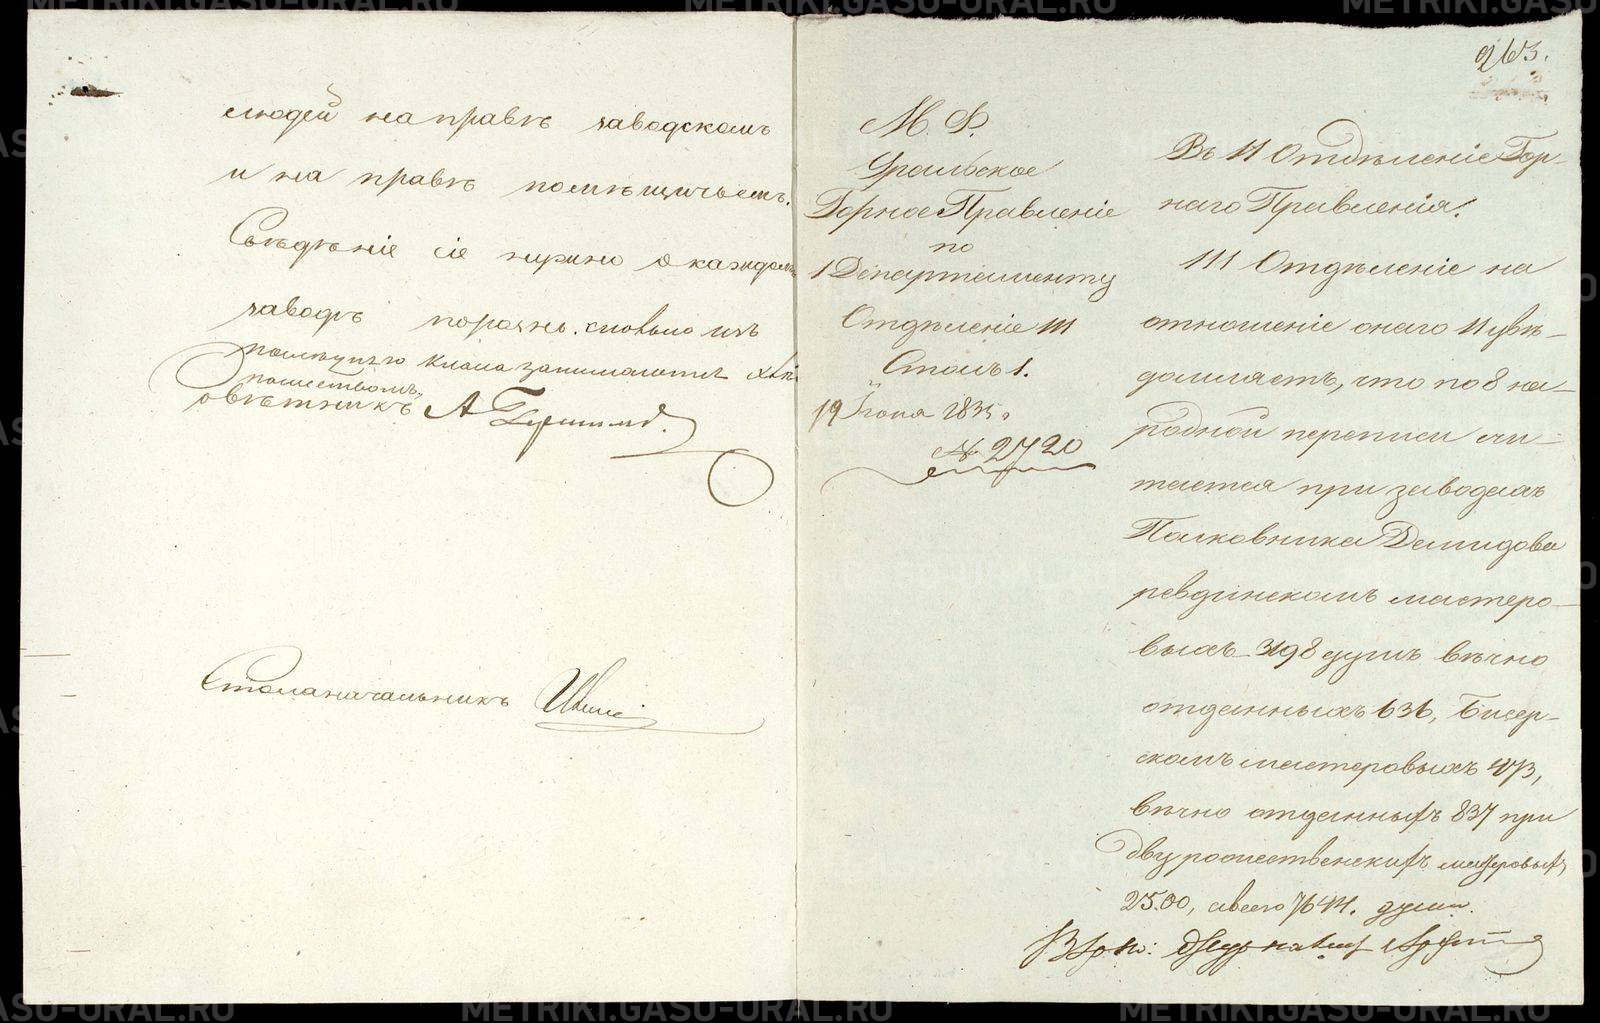 людей на правѣ заводскомъ
и на правѣ помѣщичьемъ.
Свѣдѣніе сіе нужно о каждомъ
заводѣ порознь. сколько изъ
класа занимается хлѣбо
пашествомъ.
Совѣтникъ А
Столоначальникъ
263.
М. Ф.
Уральское
Горное Правленіе
по
1 Департаменту
Отдѣленіе III
Столъ 1.
19 Іюня 1835.
№ 2720
Въ II Отдѣленіе Гор-
наго Правленія.
III Отдѣленіе на
отношеніе онаго II увѣ-
домляетъ, что по 8 на-
родной переписи счи-
тается при заводахъ
Полковника Демидова
ревдинскомъ мастеро-
выхъ 3198 душъ вѣчно
отданныхъ 636, Бисер-
скомъ мастеровыхъ 473,
вѣчно отданныхъ 837 при
двухъ рожественскихъ мастеровыхъ
2500, а всего 7644. души.
METRIKI.GASU-URAL.RU